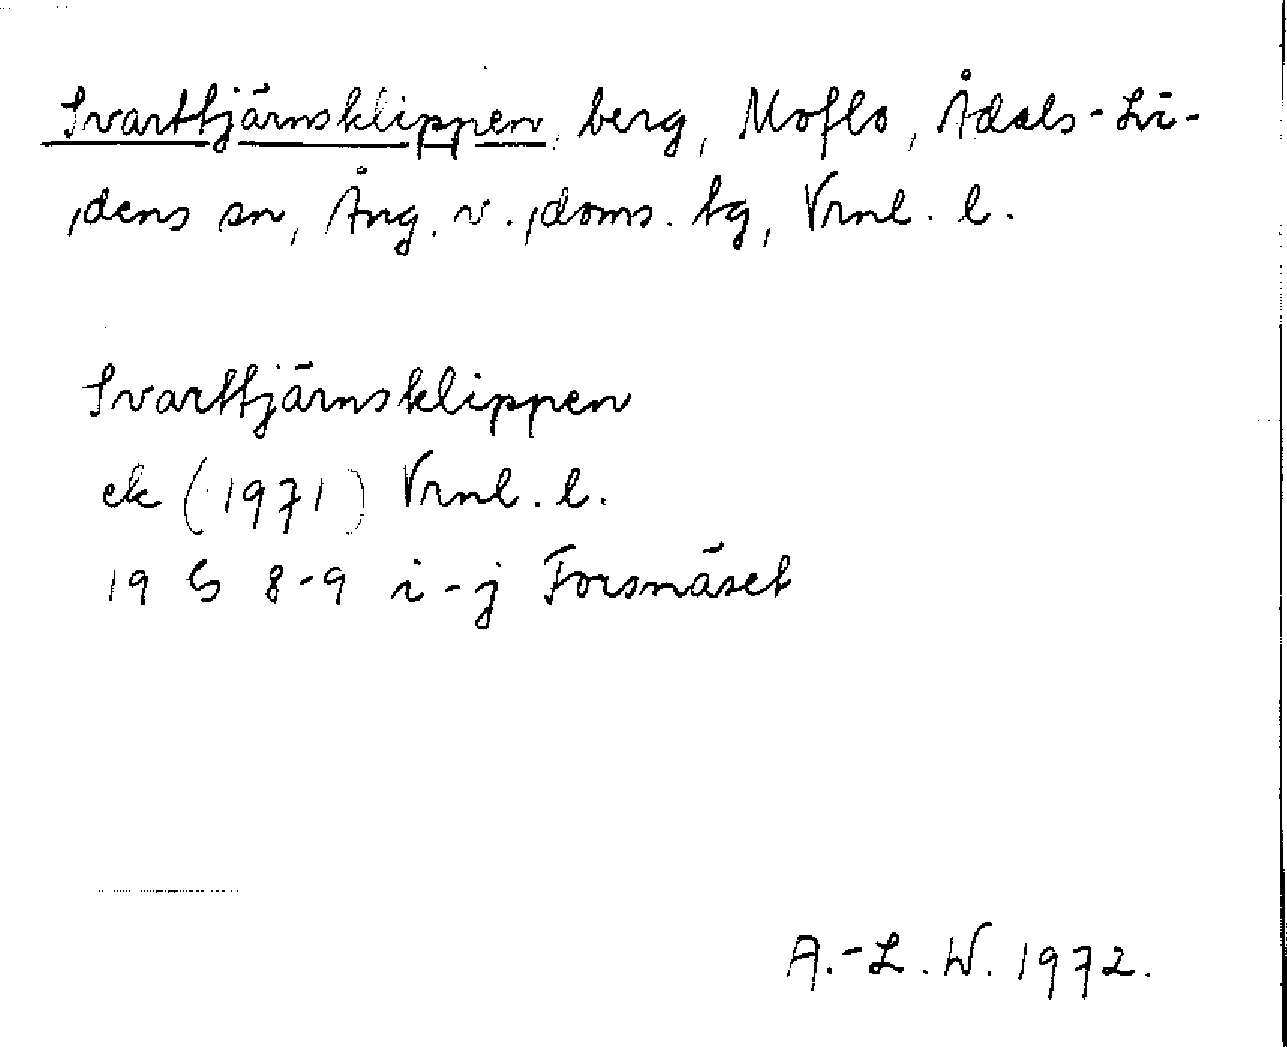 Svarttjärnsklippen, berg, Moflo, Ådals-Li-
dens sn, Ång. v. doms. tg, Vrnl. l.
Svarttjärnsklippen
ek (1971) Vrnl. l.
19 G 8-9 i-j Forsnäset
A.-L. W. 1972.